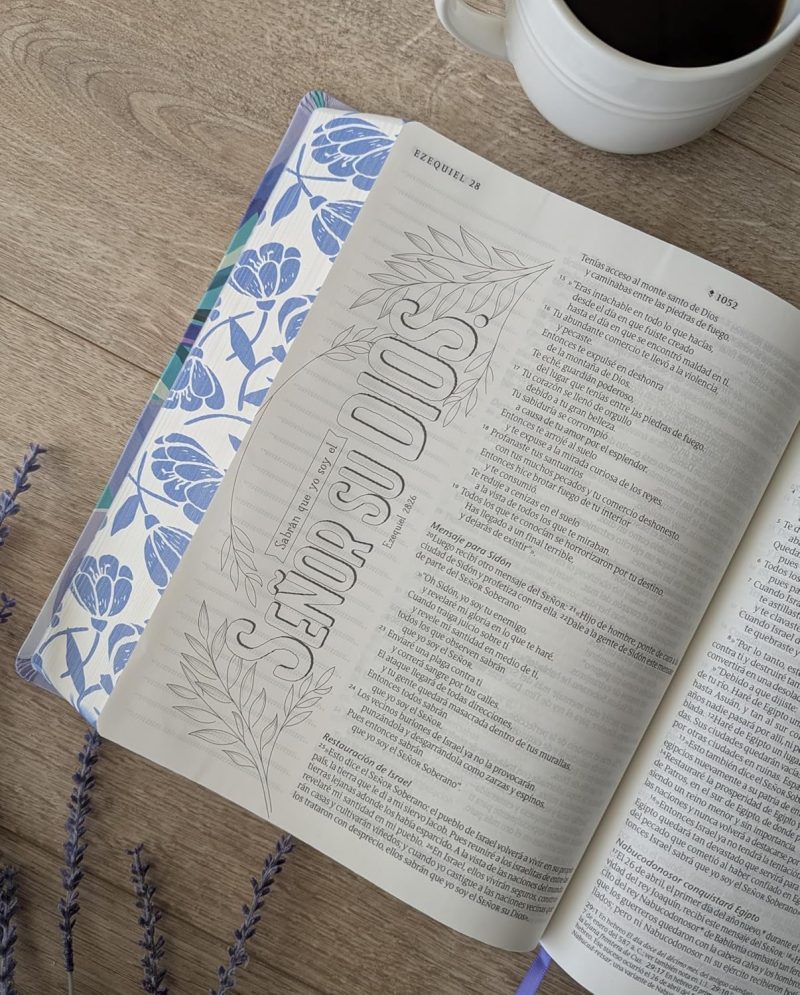 EZEQUIEL 28
1052
Sabrán que yo soy el
SEÑOR SU DIOS.
Ezequiel 28:26
Tenías acceso al monte santo de Dios
y caminabas entre las piedras de fuego.
15 »"Eras intachable en todo lo que hacías,
desde el día en que fuiste creado
hasta el día en que se encontró maldad en ti.
16 Tu abundante comercio te llevó a la violencia,
y pecaste.
Entonces te expulsé en deshonra
de la montaña de Dios.
Te eché, guardián poderoso,
del lugar que tenías entre las piedras de fuego.
17 Tu corazón se llenó de orgullo
debido a tu gran belleza.
Tu sabiduría se corrompió
a causa de tu amor por el esplendor.
Entonces te arrojé al suelo
y te expuse a la mirada curiosa de los reyes.
18 Profanaste tus santuarios
con tus muchos pecados y tu comercio deshonesto.
Entonces hice brotar fuego de tu interior
y te consumió.
Te reduje a cenizas en el suelo
a la vista de todos los que te miraban.
19 Todos los que te conocían se horrorizaron por tu destino.
Has llegado a un final terrible,
y dejarás de existir"».
Mensaje para Sidón
20 Luego recibí otro mensaje del SEÑOR: 21 «Hijo de hombre, ponte de cara a la
ciudad de Sidón y profetiza contra ella. 22 Dale a la gente de Sidón este mensaje
de parte del SEÑOR Soberano:
»"Oh Sidón, yo soy tu enemigo,
y revelaré mi gloria en lo que te haré.
Cuando traiga juicio sobre ti
y revele mi santidad en medio de ti,
todos los que observen sabrán
que yo soy el SEÑOR.
23 Enviaré una plaga contra ti
y correrá sangre por tus calles.
El ataque llegará de todas direcciones,
y tu gente quedará masacrada dentro de tus murallas.
Entonces todos sabrán
que yo soy el SEÑOR.
24 Los vecinos burlones de Israel ya no la provocarán.
Punzándola y desgarrándola como zarzas y espinos.
Pues entonces sabrán
que yo soy el SEÑOR Soberano"
Restauración de Israel
25 »Esto dice el SEÑOR Soberano: el pueblo de Israel volverá a vivir en su propio
país, la tierra que le di a mi siervo Jacob. Pues reuniré a los israelitas de entre las
tierras lejanas adonde los había esparcido. A la vista de las naciones del mundo,
revelaré mi santidad en mi pueblo. 26 En Israel, ellos vivirán seguros, construi-
rán casas y cultivarán viñedos; y cuando yo castigue a las naciones vecinas que
los trataron con desprecio, ellos sabrán que yo soy el SEÑOR su Dios».
5 Te de
Queda
pues
6 Todos los
pues pa
7 Cuando Israel
te astillas
y te clavaste
Cuando Israel
te quebraste y
8 »"Por lo tanto, est
contra ti y destruiré tan
convertirá en una desola
»"Debido a que dijiste:
Nabucodonosor conquistará Egipto